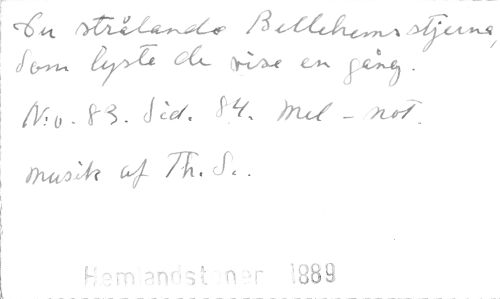 Du strålande Bettlehemsstjerna,
som lyste de vise en gång.
N:o. 83. Sid. 84. Mel-not.
musik af Th. S..
Hemlandstoner 1889